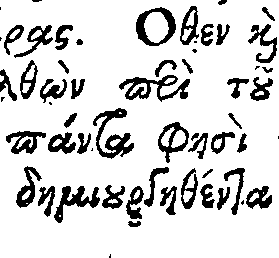 ρας. Ὅθεν κ̀
λθὼν περὶ τοῦ
πάντα φησὶ
δημιουργηθέντα